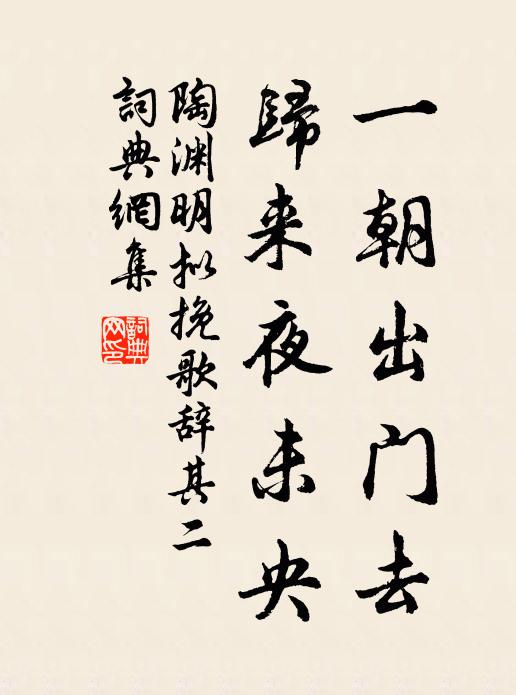 一朝出门去
歸来夜未央
陶渊明拟挽歌辞其二
詞典網集
詞典网印